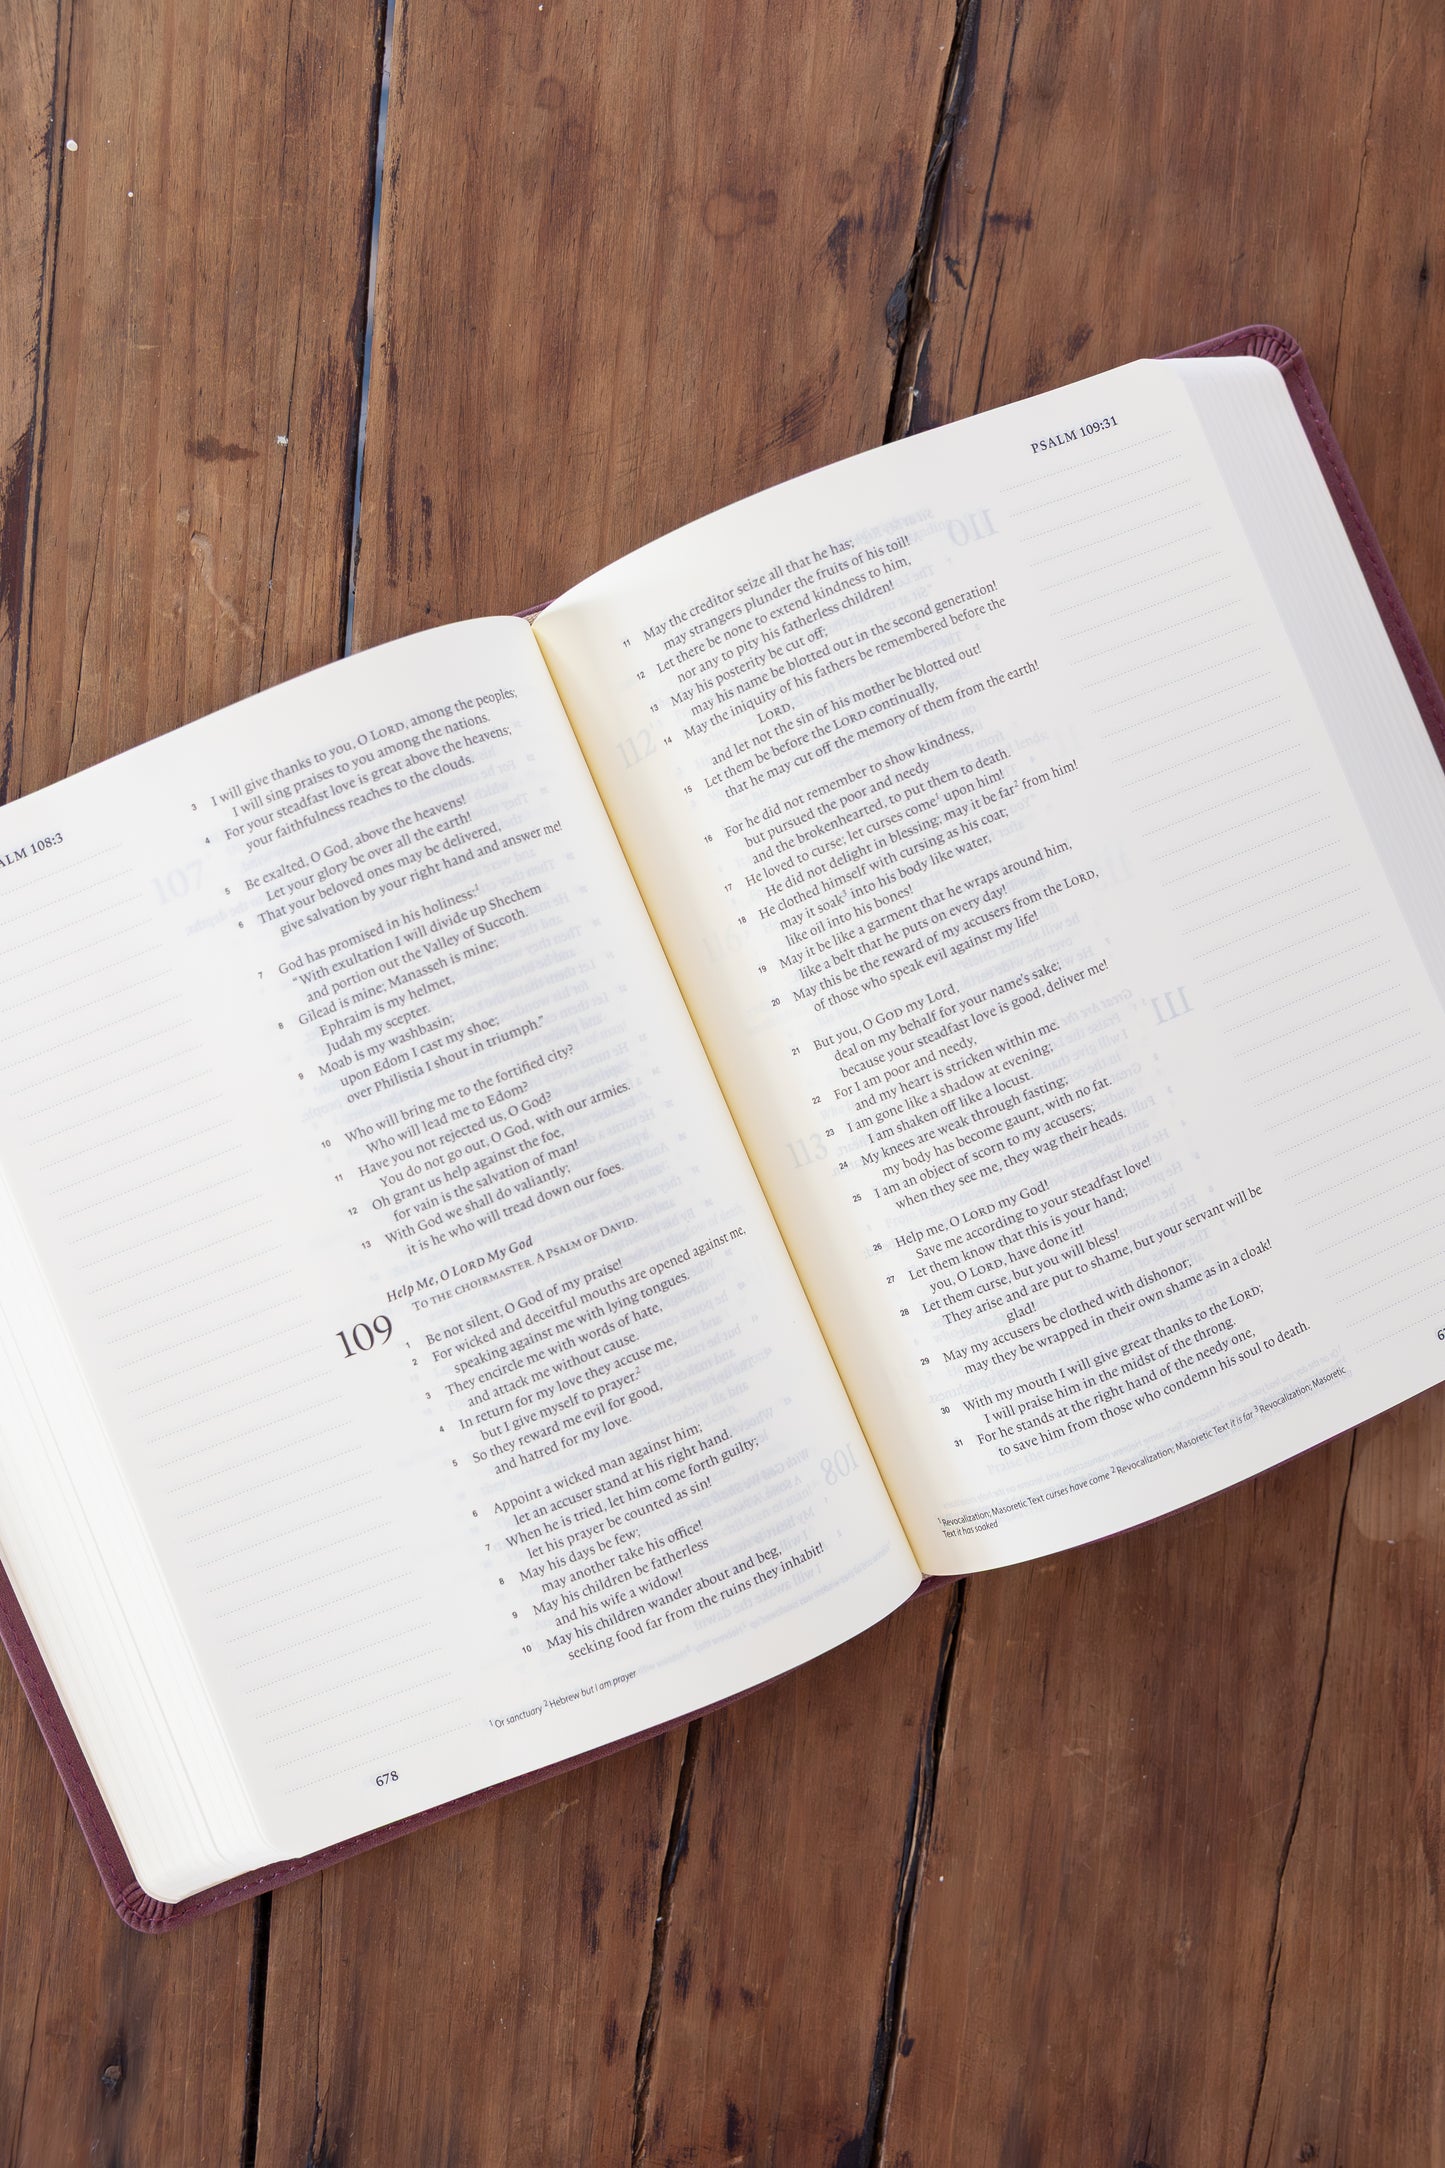 ALM 108:3
3 I will give thanks to you, O LORD, among the peoples;
I will sing praises to you among the nations.
4 For your steadfast love is great above the heavens;
your faithfulness reaches to the clouds.
5 Be exalted, O God, above the heavens!
Let your glory be over all the earth!
6 That your beloved ones may be delivered,
give salvation by your right hand and answer me!
7 God has promised in his holiness:1
“With exultation I will divide up Shechem
and portion out the Valley of Succoth.
8 Gilead is mine; Manasseh is mine;
Ephraim is my helmet,
Judah my scepter.
9 Moab is my washbasin;
upon Edom I cast my shoe;
over Philistia I shout in triumph.”
10 Who will bring me to the fortified city?
Who will lead me to Edom?
11 Have you not rejected us, O God?
You do not go out, O God, with our armies.
12 Oh grant us help against the foe,
for vain is the salvation of man!
13 With God we shall do valiantly;
it is he who will tread down our foes.
Help Me, O LORD My God
TO THE CHOIRMASTER. A PSALM OF DAVID.
109
1 Be not silent, O God of my praise!
2 For wicked and deceitful mouths are opened against me,
speaking against me with lying tongues.
3 They encircle me with words of hate,
and attack me without cause.
4 In return for my love they accuse me,
but I give myself to prayer.2
5 So they reward me evil for good,
and hatred for my love.
6 Appoint a wicked man against him;
let an accuser stand at his right hand.
7 When he is tried, let him come forth guilty;
let his prayer be counted as sin!
8 May his days be few;
may another take his office!
9 May his children be fatherless
and his wife a widow!
10 May his children wander about and beg,
seeking food far from the ruins they inhabit!
1 Or sanctuary 2 Hebrew but I am prayer
678
PSALM 109:31
11 May the creditor seize all that he has;
may strangers plunder the fruits of his toil!
12 Let there be none to extend kindness to him,
nor any to pity his fatherless children!
13 May his posterity be cut off;
may his name be blotted out in the second generation!
14 May the iniquity of his fathers be remembered before the
LORD,
and let not the sin of his mother be blotted out!
15 Let them be before the LORD continually,
that he may cut off the memory of them from the earth!
16 For he did not remember to show kindness,
but pursued the poor and needy
and the brokenhearted, to put them to death.
17 He loved to curse; let curses come1 upon him!
He did not delight in blessing; may it be far2 from him!
18 He clothed himself with cursing as his coat;
may it soak3 into his body like water,
like oil into his bones!
19 May it be like a garment that he wraps around him,
like a belt that he puts on every day!
20 May this be the reward of my accusers from the LORD,
of those who speak evil against my life!
21 But you, O GOD my Lord,
deal on my behalf for your name’s sake;
because your steadfast love is good, deliver me!
22 For I am poor and needy,
and my heart is stricken within me.
23 I am gone like a shadow at evening;
I am shaken off like a locust.
24 My knees are weak through fasting;
my body has become gaunt, with no fat.
25 I am an object of scorn to my accusers;
when they see me, they wag their heads.
26 Help me, O LORD my God!
Save me according to your steadfast love!
27 Let them know that this is your hand;
you, O LORD, have done it!
28 Let them curse, but you will bless!
They arise and are put to shame, but your servant will be
glad!
29 May my accusers be clothed with dishonor;
may they be wrapped in their own shame as in a cloak!
30 With my mouth I will give great thanks to the LORD;
I will praise him in the midst of the throng.
31 For he stands at the right hand of the needy one,
to save him from those who condemn his soul to death.
1 Revocalization; Masoretic Text curses have come 2 Revocalization; Masoretic Text it is far 3 Revocalization; Masoretic
Text it has soaked